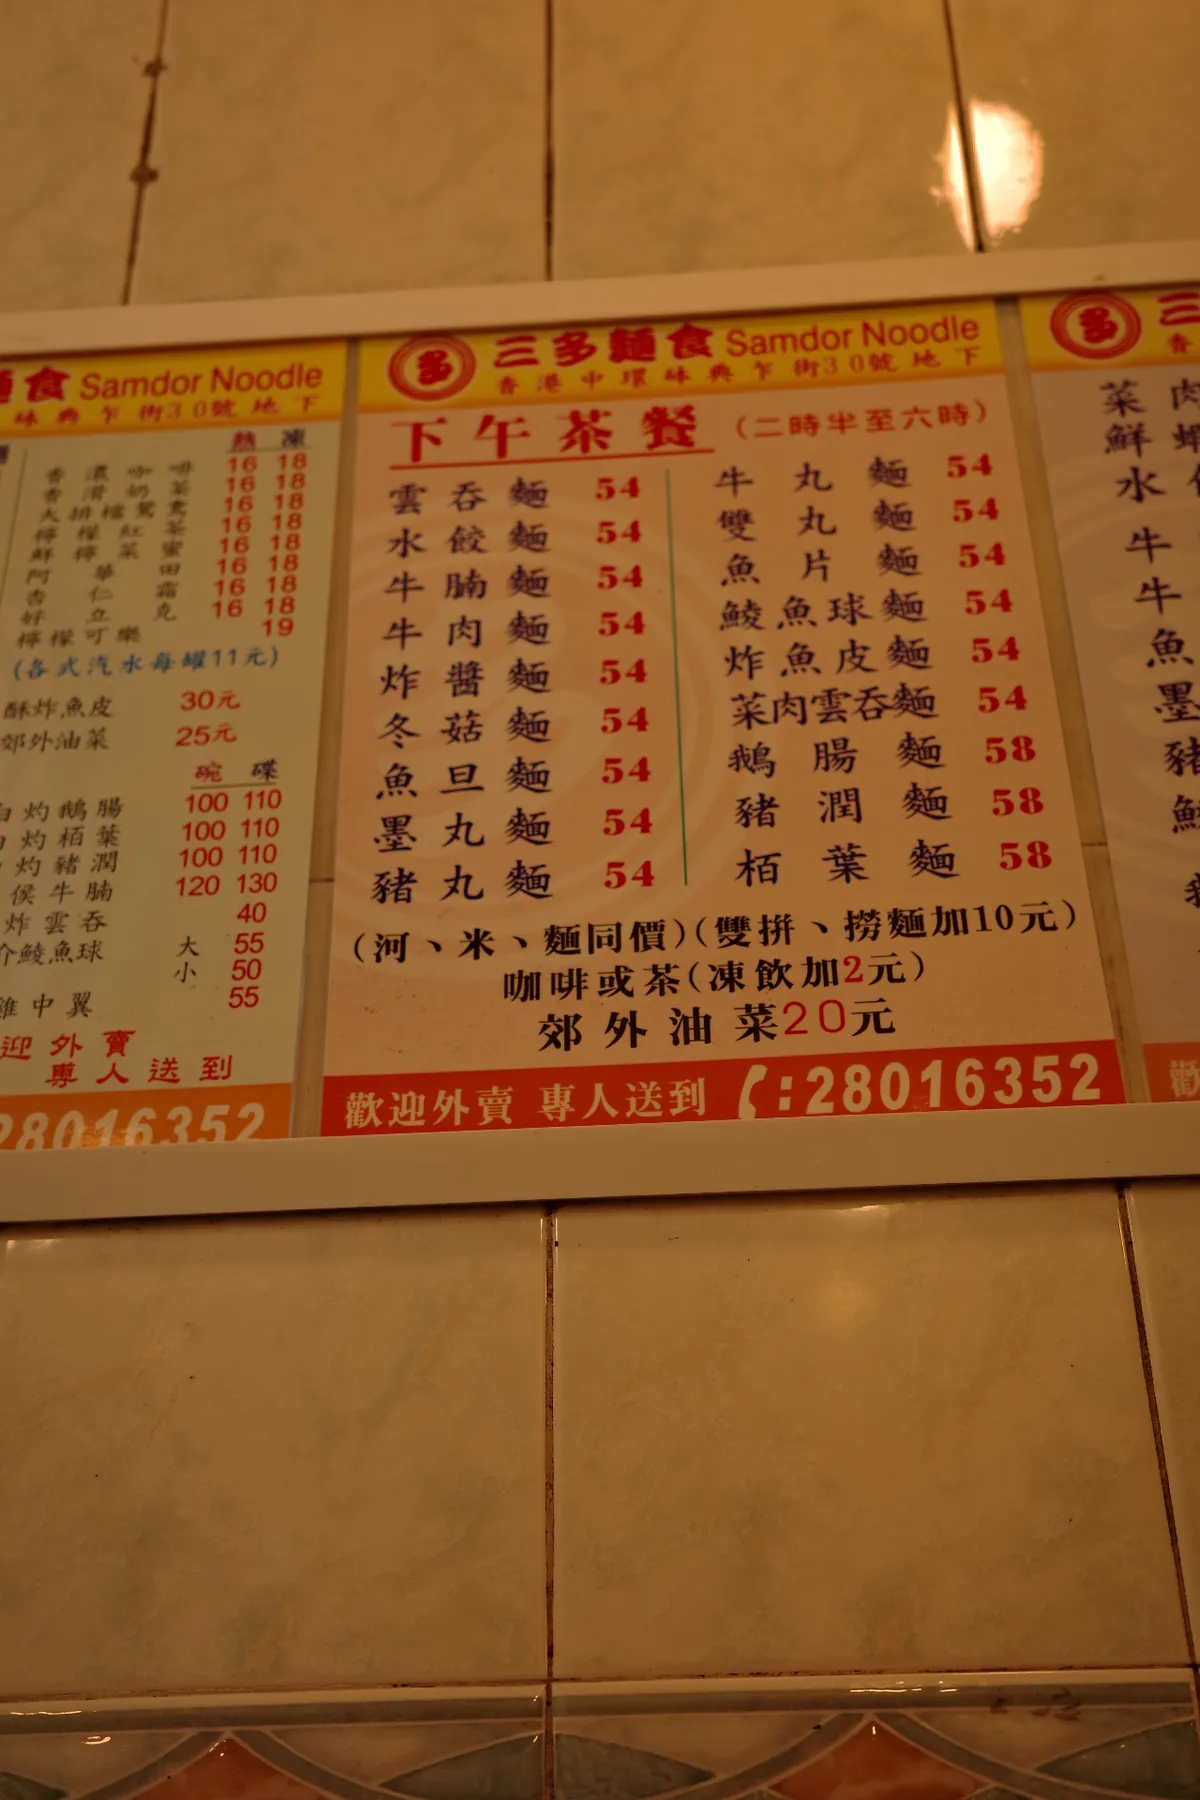 食 Samdor Noodle
砵典乍街30號地下
熱 凍
香濃咖啡 16 18
香滑奶茶 16 18
大排檔鴛鴦 16 18
檸檬紅茶 16 18
鮮檸菜蜜 16 18
阿華田 16 18
杏仁霜 16 18
好立克 16 18
檸檬可樂 19
(各式汽水每罐11元)
酥炸魚皮 30元
郊外油菜 25元
碗 碟
白灼鵝腸 100 110
灼栢葉 100 110
灼豬潤 100 110
侯牛腩 120 130
炸雲吞 40
介鯪魚球 大 55
小 50
雞中翼 55
迎外賣
專人送到
28016352
多 三多麵食 Samdor Noodle
香港中環砵典乍街30號地下
下午茶餐 (二時半至六時)
雲吞麵 54
水餃麵 54
牛腩麵 54
牛肉麵 54
炸醬麵 54
冬菇麵 54
魚旦麵 54
墨丸麵 54
豬丸麵 54
牛丸麵 54
雙丸麵 54
魚片麵 54
鯪魚球麵 54
炸魚皮麵 54
菜肉雲吞麵 54
鵝腸麵 58
豬潤麵 58
栢葉麵 58
(河、米、麵同價)(雙拼、撈麵加10元)
咖啡或茶(凍飲加2元)
郊外油菜20元
歡迎外賣 專人送到 :28016352
多 三
香
菜肉
鮮蝦
水
牛
牛
魚
墨
豬
鯪
歡